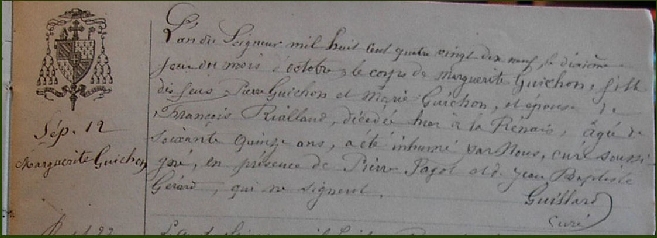 L'an du Seigneur mil huit cent quatre vingt dix neuf, le dixième
jour du mois d'octobre, le corps de Marguerite Guichon, fille
des feus Pierre Guichon et Marie Guichon, et épouse de
François Rialland, décédée hier à la Renais, âgée de
soixante quinze ans, a été inhumé par Nous, curé soussi-
gné, en présence de Pierre Pagot et de Jean Baptiste
Gérard, qui ne signent.
Guillard
curé
Sép. 12
Marguerite Guichon